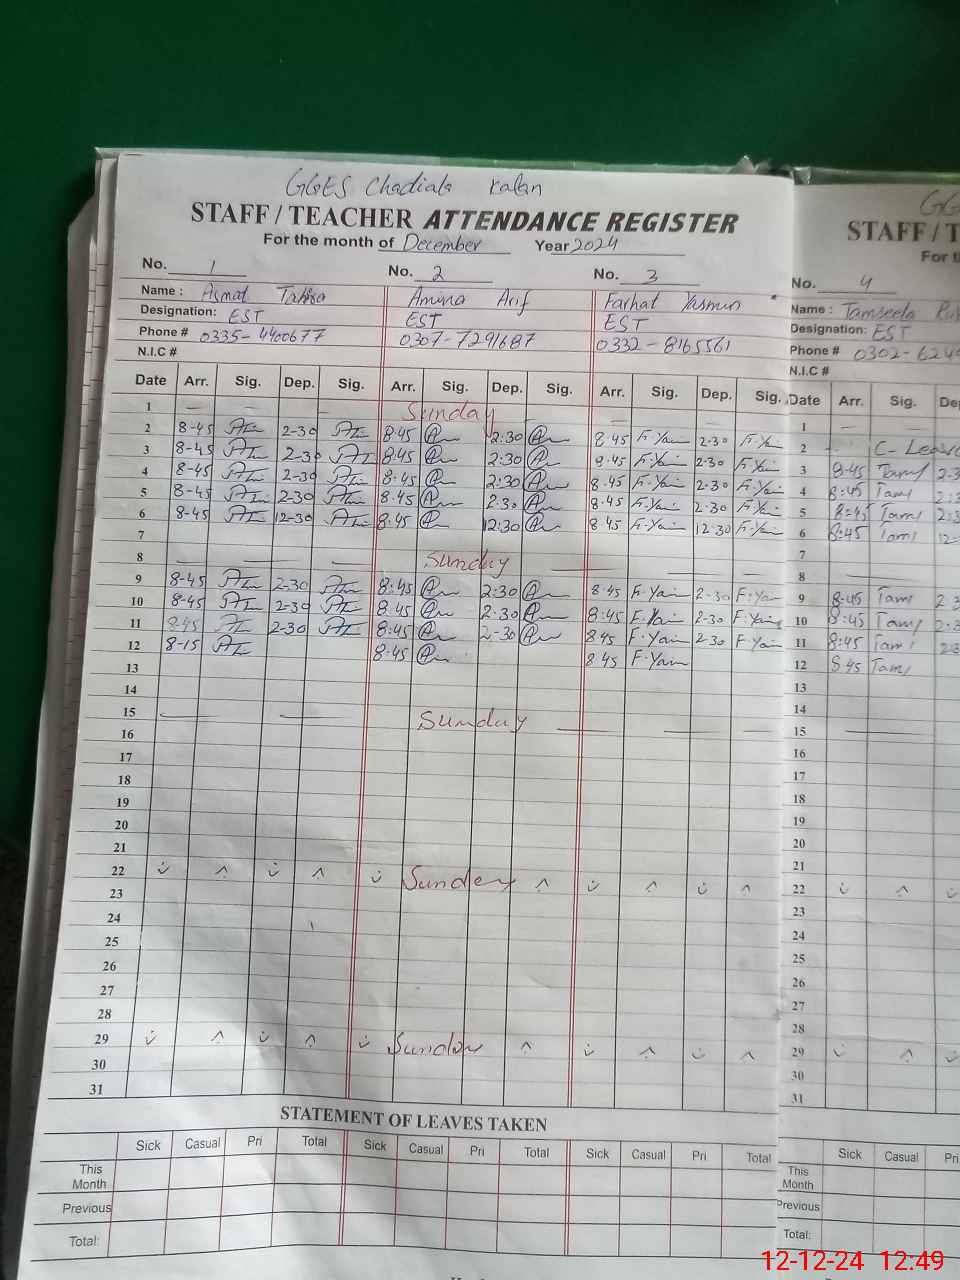 GGES Chadiala Kalan
STAFF / TEACHER ATTENDANCE REGISTER
For the month of December Year 2024
No. 1 No. 2 No. 3
Name : Asmat Amina Arif Farhat Yasmin
Designation: EST EST EST
Phone # 0335-4400677 0307-7291687 0332-8165561
N.I.C #
Date Arr. Sig. Dep. Sig. Arr. Sig. Dep. Sig. Arr. Sig. Dep. Sig.
1 Sunday
2 8-45 2-30 8:45 2:30 8 45 F.Yain 2-30 F.Yain
3 8-45 2-30 8:45 2:30 8.45 F.Yain 2-30 F.Yain
4 8-45 2-30 8:45 2:30 8.45 F.Yain 2.30 F.Yain
5 8-45 2-30 8:45 2:30 8.45 F.Yain 2.30 F.Yain
6 8-45 12-30 8:45 12:30 8 45 F.Yain 12.30 F.Yain
7
8 Sunday
9 8-45 2-30 8:45 2:30 8.45 F.Yain 2-30 F.Yain
10 8-45 2-30 8:45 2:30 8:45 F.Yain 2-30 F.Yain
11 8-45 2-30 8:45 2-30 8 45 F.Yain 2-30 F.Yain
12 8-15 8:45 8 45 F.Yain
13
14
15 Sunday
16
17
18
19
20
21
22 Sunday
23
24
25
26
27
28
29 Sunday
30
31
STATEMENT OF LEAVES TAKEN
Sick Casual Pri Total Sick Casual Pri Total Sick Casual Pri Total
This Month
Previous
Total:
GG
STAFF / T
For th
No. 4
Name : Tamseela
Designation: EST
Phone # 0302-624
N.I.C #
Date Arr. Sig. De
1
2 C-Leave
3 8:45 Tam 2-3
4 8:45 Tam 2:3
5 8:45 Tam 2:3
6 8:45 Tam 12-
7
8
9 8:45 Tam 2 3
10 8:45 Tam 2-3
11 8:45 Tam 2-3
12 8 45 Tam
13
14
15
16
17
18
19
20
21
22
23
24
25
26
27
28
29
30
31
Sick Casual Pri
This Month
Previous
Total:
12-12-24 12:49